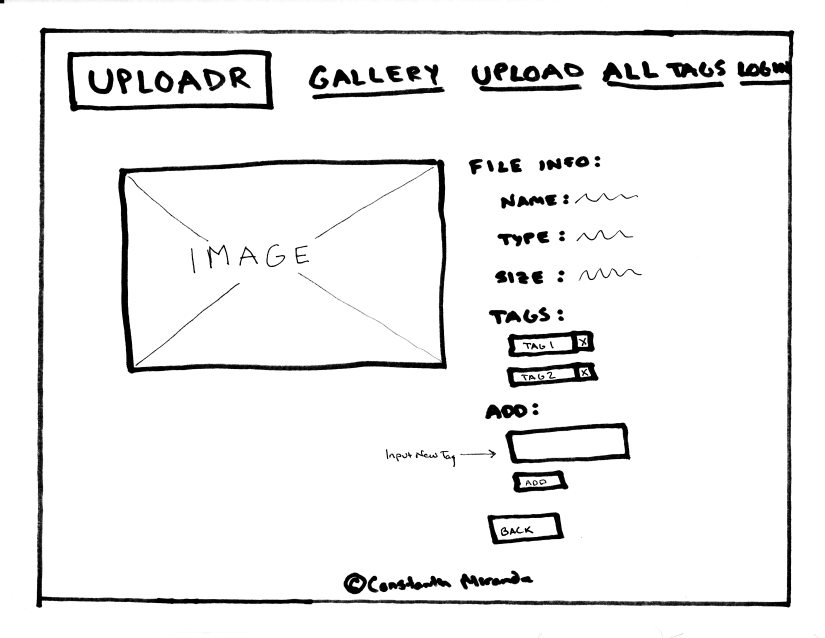 UPLOADR GALLERY UPLOAD ALL TAGS LOGIN
FILE INFO:
NAME:
IMAGE
TYPE:
SIZE:
TAGS:
TAG1 X
TAG2 X
ADD:
Input New Tag
ADD
BACK
© Constantin Miranda